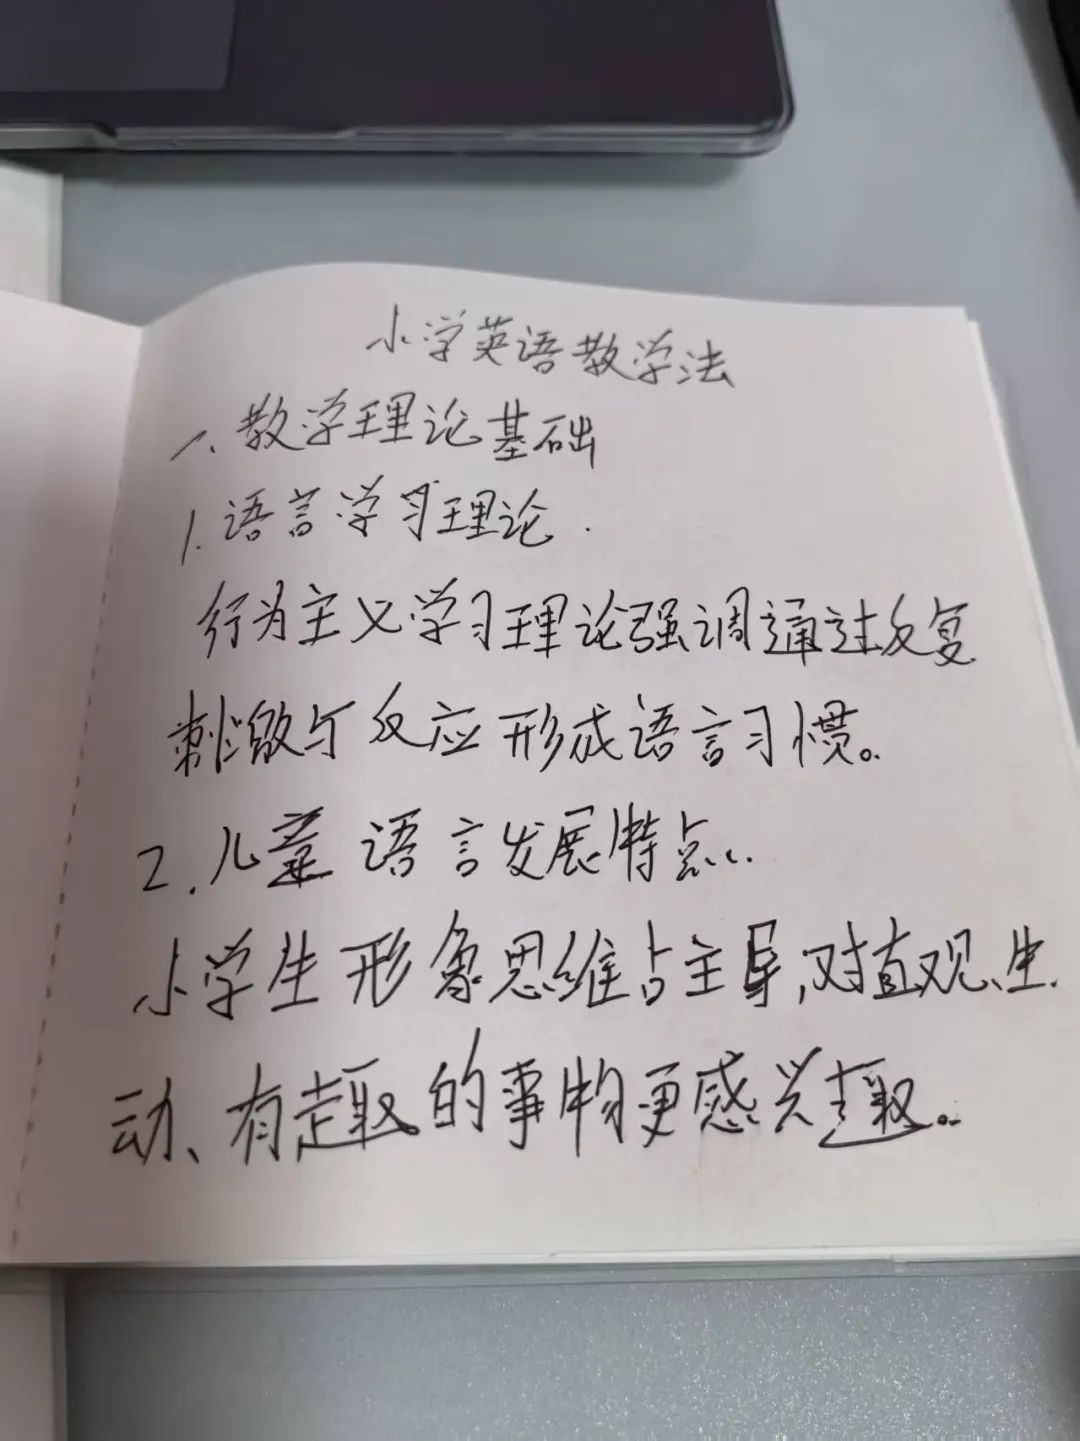 小学英语教学法
一、教学理论基础
1. 语言学习理论.
行为主义学习理论强调通过反复
刺激与反应形成语言习惯。
2. 儿童语言发展特点.
小学生形象思维占主导,对直观、生
动、有趣的事物更感兴趣。